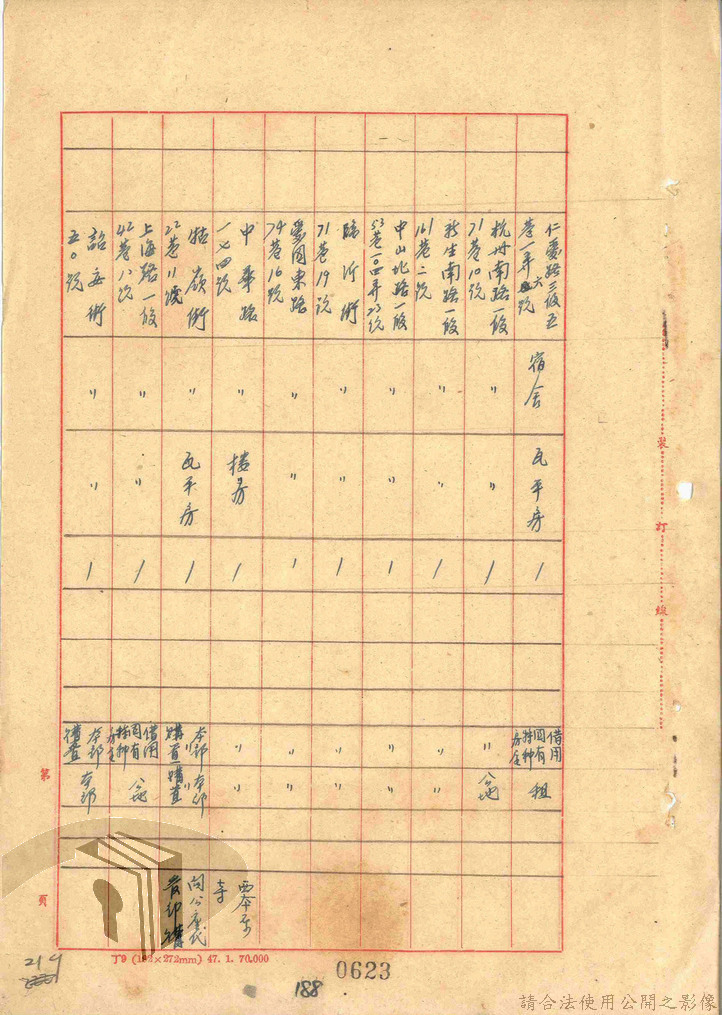 仁愛路三段五
巷一弄六號
宿舍
瓦平房
1
借用
國有
特种
房舍
租
杭州南路一段
71巷10號
〃
〃
1
〃
公地
新生南路一段
161巷二號
〃
〃
1
〃
〃
中山北路一段
53巷一〇四弄23號
〃
〃
1
〃
〃
臨沂街
71巷19號
〃
〃
1
〃
〃
愛国東路
74巷16號
〃
〃
1
〃
〃
中華路
一七四號
〃
楼房
1
〃
〃
西本願
寺
牯嶺街
22巷11號
〃
瓦平房
1
本部
購置
本部
購置
上海路一段
42巷八號
〃
〃
1
借用
國有
特种
房舍
公地
詔安街
五〇號
〃
〃
1
本部
購置
本部
裝
訂
線
第
頁
丁9 (192×272mm) 47. 1. 70.000
0623
188
214
請合法使用公開之影像